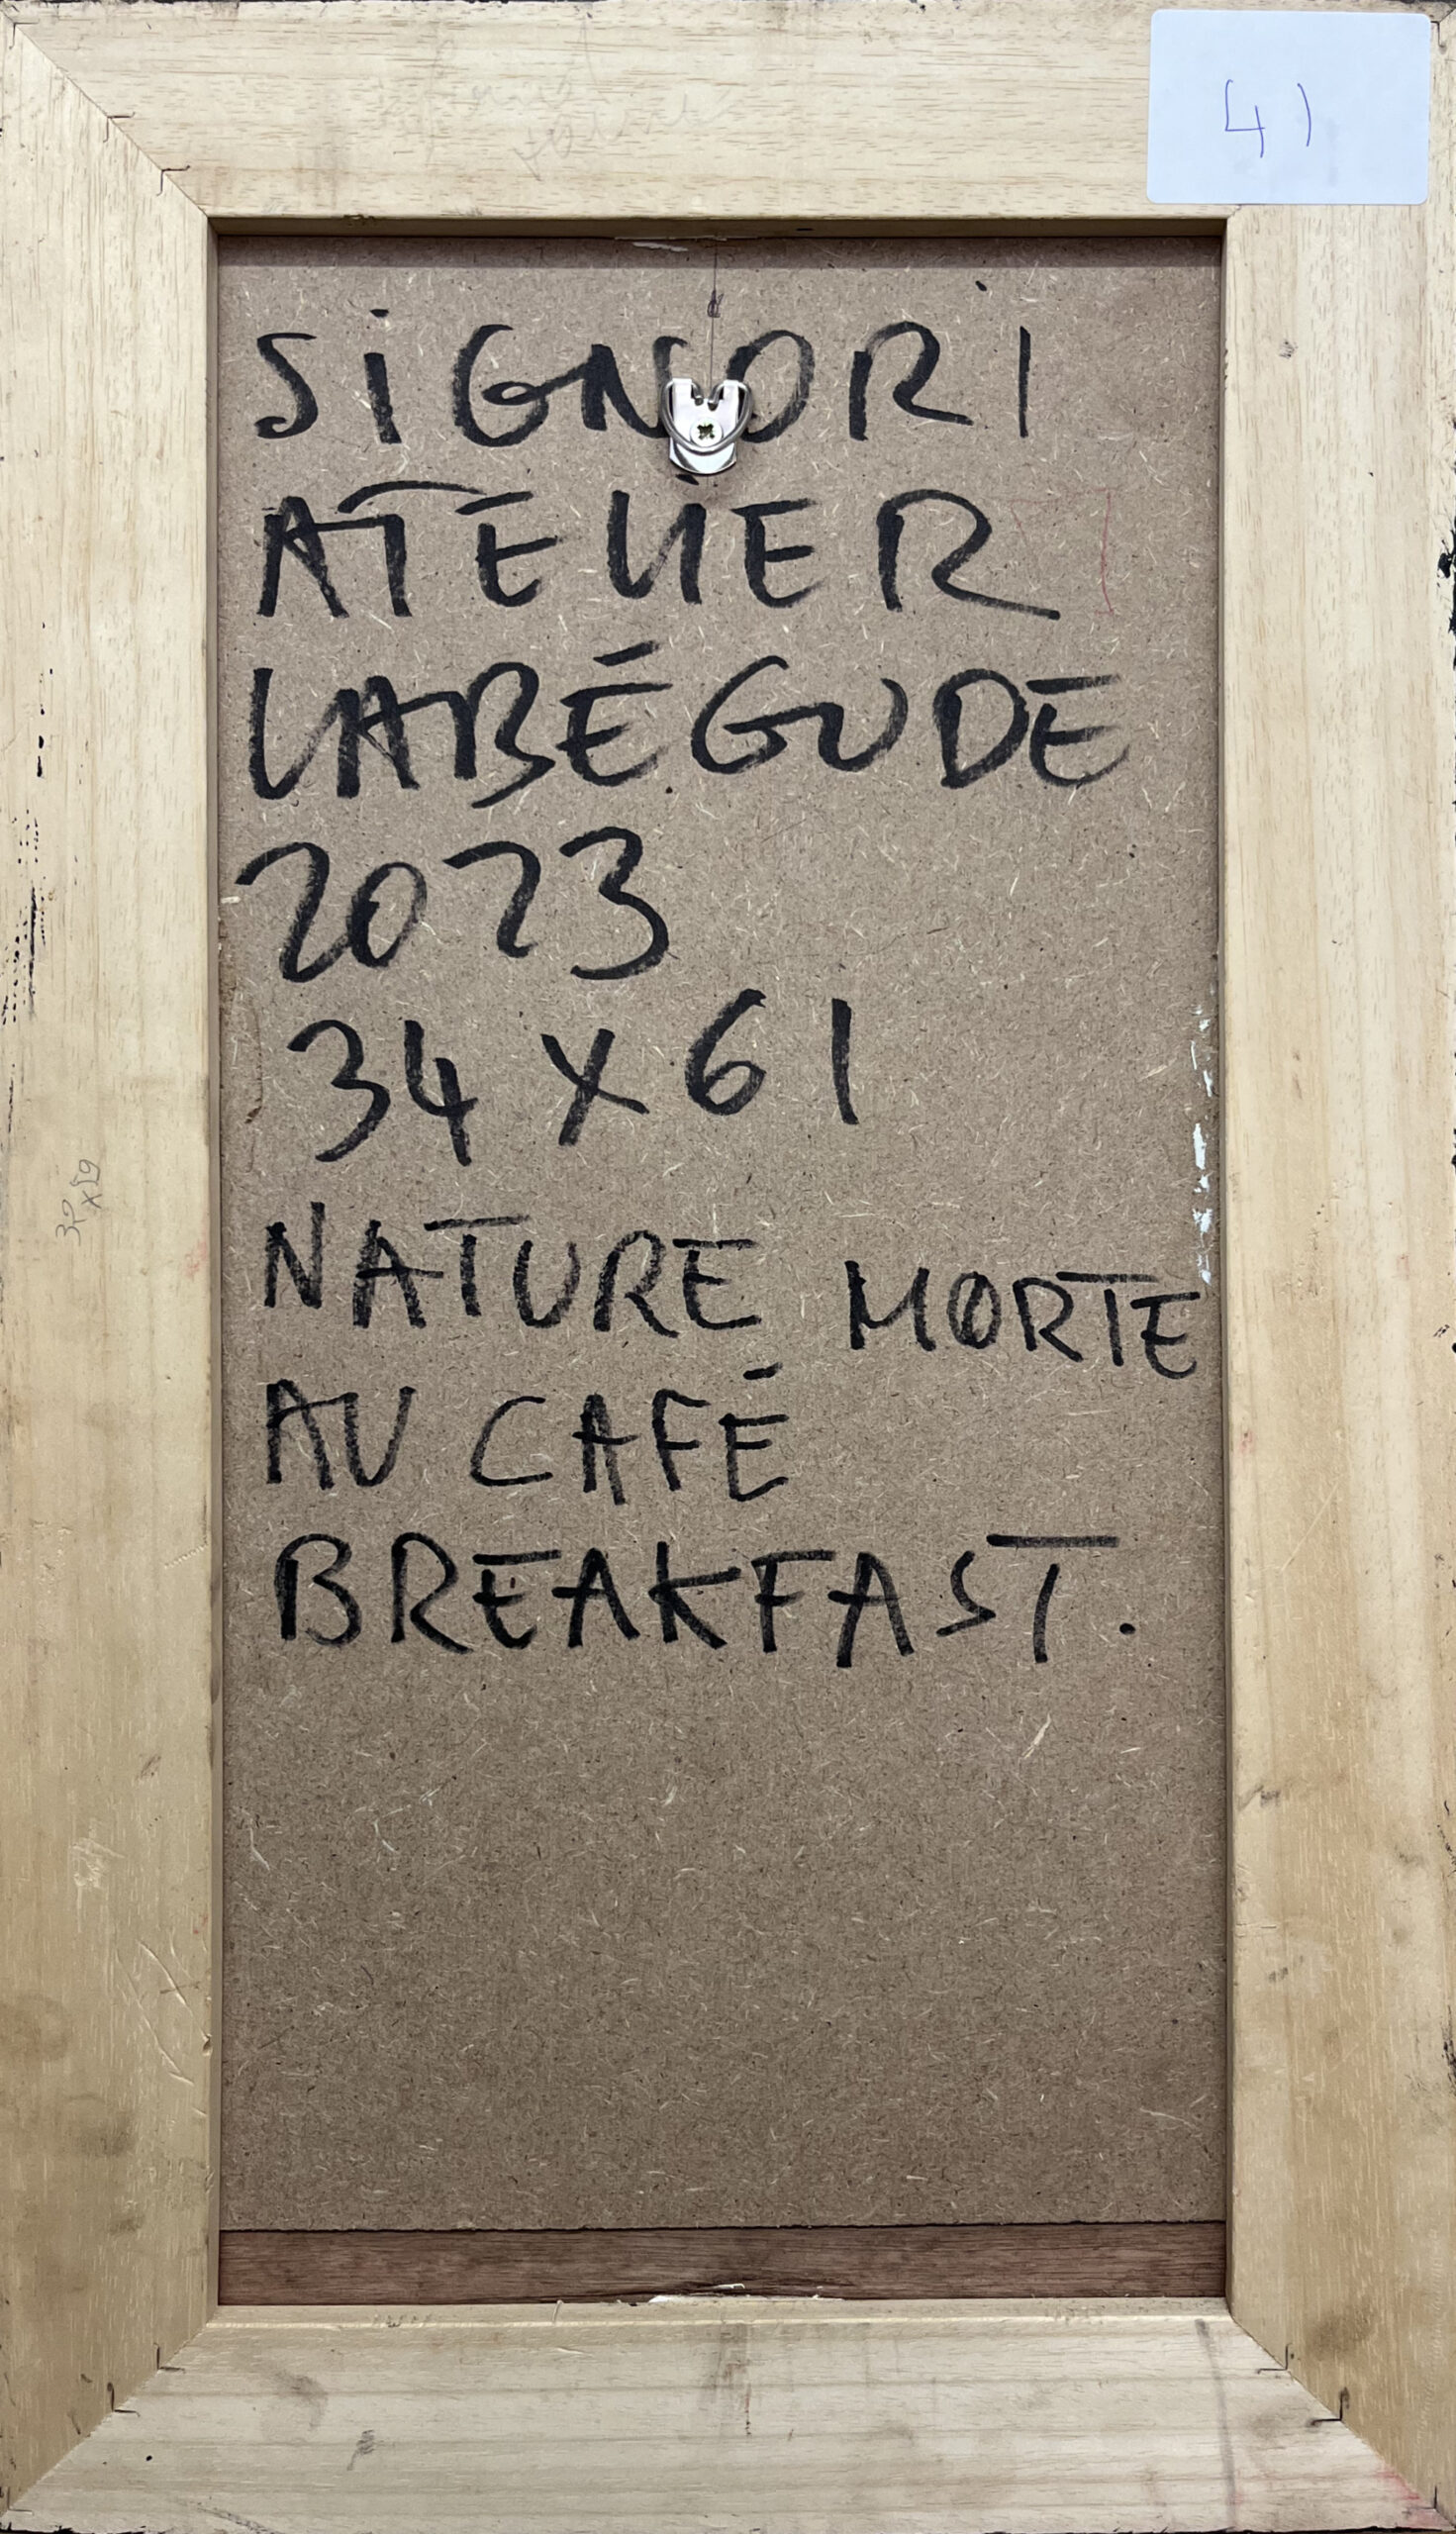 41
SiGNORI
ATELIER
LABÉGUDE
2023
34 X 61
NATURE MORTE
AU CAFÉ
BREAKFAST.